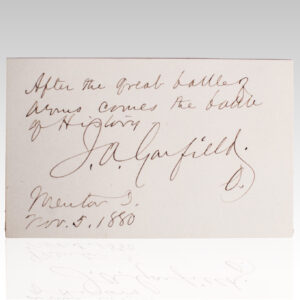 After the great battle of
arms comes the battle
of History
J. A. Garfield.
Mentor O.
Nov. 5. 1880